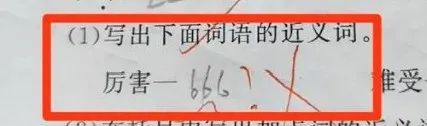 (1)写出下面词语的近义词。
厉害— 666 ? 难受—